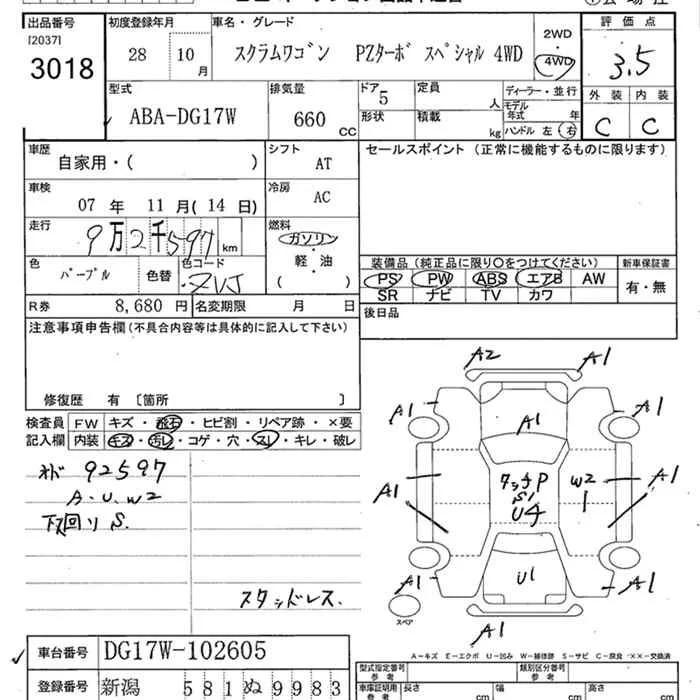 出品番号
[2037]
3018
初度登録年月
28 10 月
車名・グレード
スクラムワゴン PZターボ スペシャル 4WD
2WD
4WD
評価点
3.5
外装 内装
C C
型式
ABA-DG17W
排気量
660 CC
ドア 5
形状
定員 人
積載 kg
ディーラー・並行
モデル年式 年
ハンドル 左 右
車歴
自家用・( )
シフト
AT
セールスポイント (正常に機能するものに限ります)
車検
07 年 11 月 ( 14 日)
冷房
AC
走行
9万2千597 km
燃料
ガソリン
軽・油
( )
色
パープル
色替
色コード
ZVJ
装備品 (純正品に限り○をつけてください)
PS PW ABS エアB AW
SR ナビ TV カワ
新車保証書
有・無
R券 8,680 円
名変期限 月 日
後日品
注意事項申告欄 (不具合内容等は具体的に記入して下さい)
修復歴 有 [箇所 ]
検査員記入欄
FW キズ・飛石・ヒビ割・リペア跡・×要
内装 キズ・汚レ・コゲ・穴・スレ・キレ・破レ
オド 92597
A・U、W2
下回り S.
スタッドレス.
A2 A1
A1 A1 A1
A1 タッチP W2 A1
S1
U4
A1 U1 A1
A1
スペア
A−キズ E−エクボ U−凹み W−補修跡 S−サビ C−腐食 ××−交換済
車台番号 DG17W-102605
登録番号 新潟 581 ぬ 9983
型式指定番号 参考
類別区分番号 参考
車庫証明用 参考
長さ cm
幅 cm
高さ cm